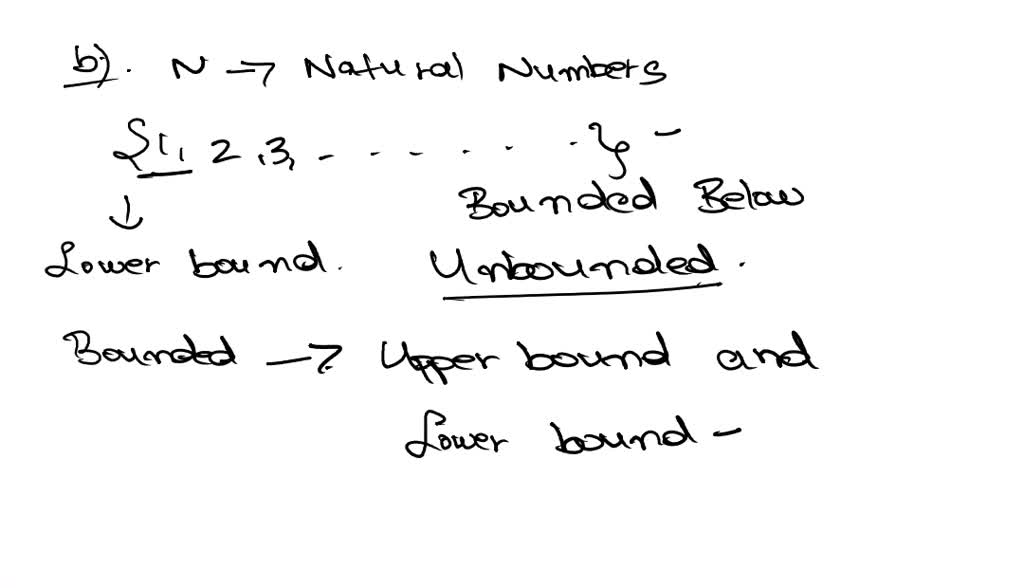 b). N → Natural Numbers
{1, 2, 3, - - - - - - - }
↓ Bounded Below
Lower bound. Unbounded.
Bounded → Upper bound and
Lower bound -